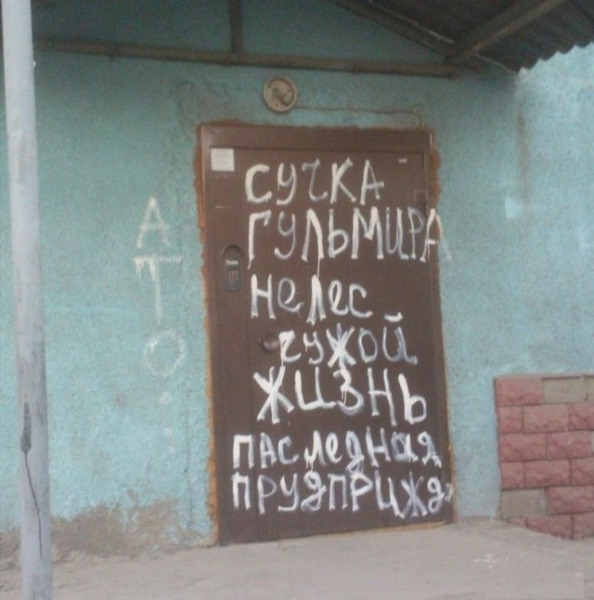 СУЧКА
ГУЛЬМИРА
НеЛеС
чужой
ЖИЗНЬ
ПАСЛеДНая
ПРУДПРИЖД
АТО